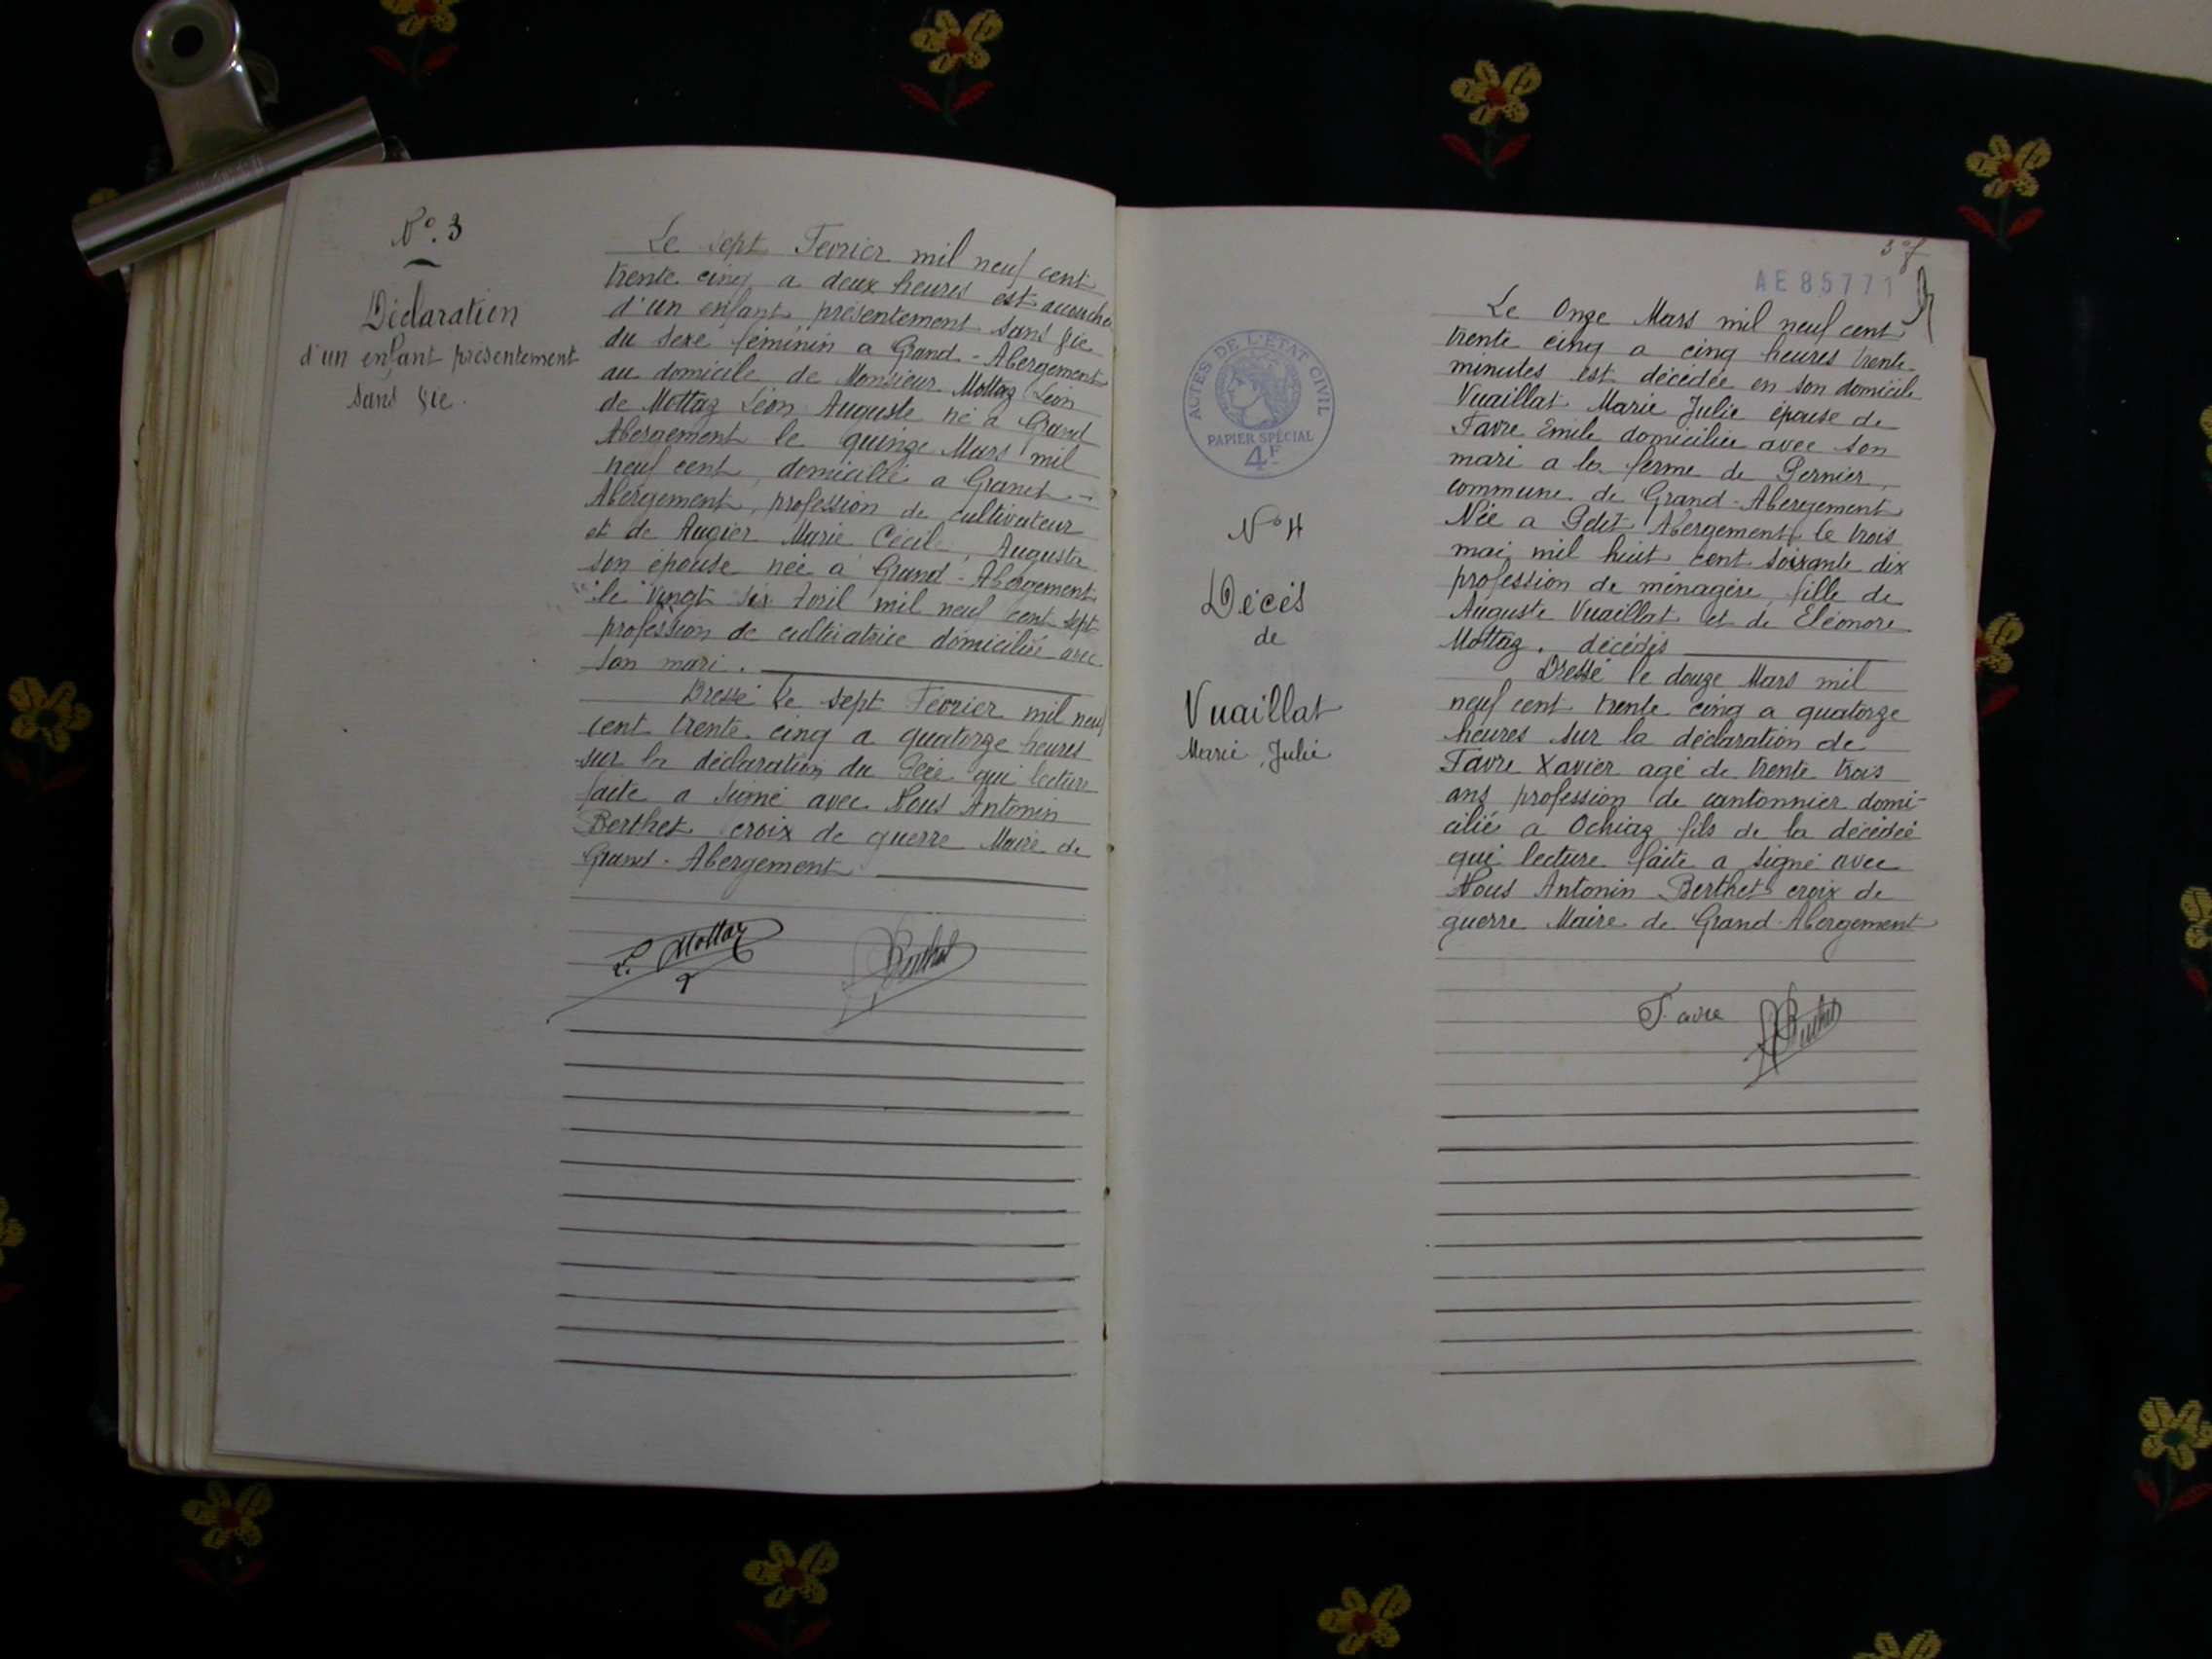 N° 3
Déclaration
d'un enfant présentement
sans vie.
Le sept Fevrier mil neuf cent
trente cinq a deux heures est accouché
d'un enfant présentement sans vie
du sexe féminin a Grand-Abergement
au domicile de Monsieur Mottaz Léon
de Mottaz Léon Auguste né a Grand
Abergement le quinze Mars mil
neuf cent, domicilié a Grand-
Abergement, profession de cultivateur
et de Augier Marie Cécile, Augusta
son épouse née a Grand-Abergement
le vingt six Avril mil neuf cent sept
profession de cultivatrice domiciliée avec
son mari.
Dressé le sept Février mil neuf
cent trente cinq a quatorze heures
sur la déclaration du Père qui lecture
faite a signé avec Nous Antonin
Berthet croix de guerre Maire de
Grand-Abergement
L. Mottaz
Berthet
3e f
AE 85771
ACTES DE L'ÉTAT CIVIL
PAPIER SPÉCIAL
4F
N° 4
Décès
de
Vuaillat
Marie Julie
Le Onze Mars mil neuf cent
trente cinq a cinq heures trente
minutes est décédée en son domicile
Vuaillat Marie Julie épouse de
Favre Emile domiciliée avec son
mari a la ferme de Pernier,
commune de Grand-Abergement
Née a Petit Abergement le trois
mai mil huit cent soixante dix
profession de ménagère, fille de
Auguste Vuaillat et de Eléonore
Mottaz, décédés
Dressé le douze Mars mil
neuf cent trente cinq a quatorze
heures sur la déclaration de
Favre Xavier agé de trente trois
ans profession de cantonnier domi-
cilié a Ochiaz fils de la décédée
qui lecture faite a signé avec
Nous Antonin Berthet croix de
guerre Maire de Grand-Abergement
Favre
Berthet